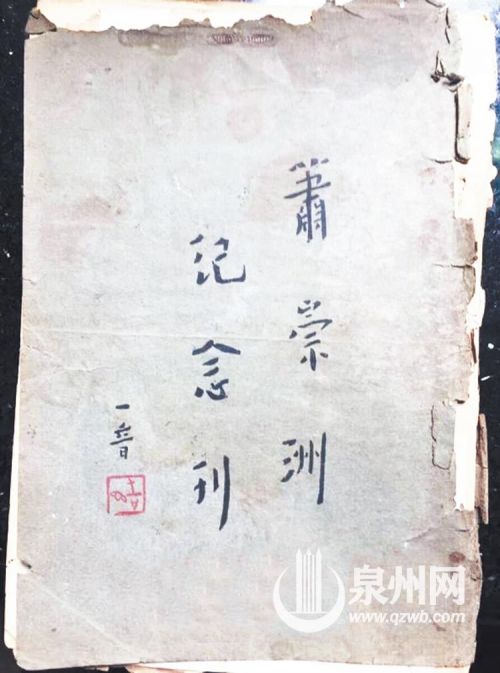 蕭崇洲
紀念刊
一音
泉州网
www.qzwb.com